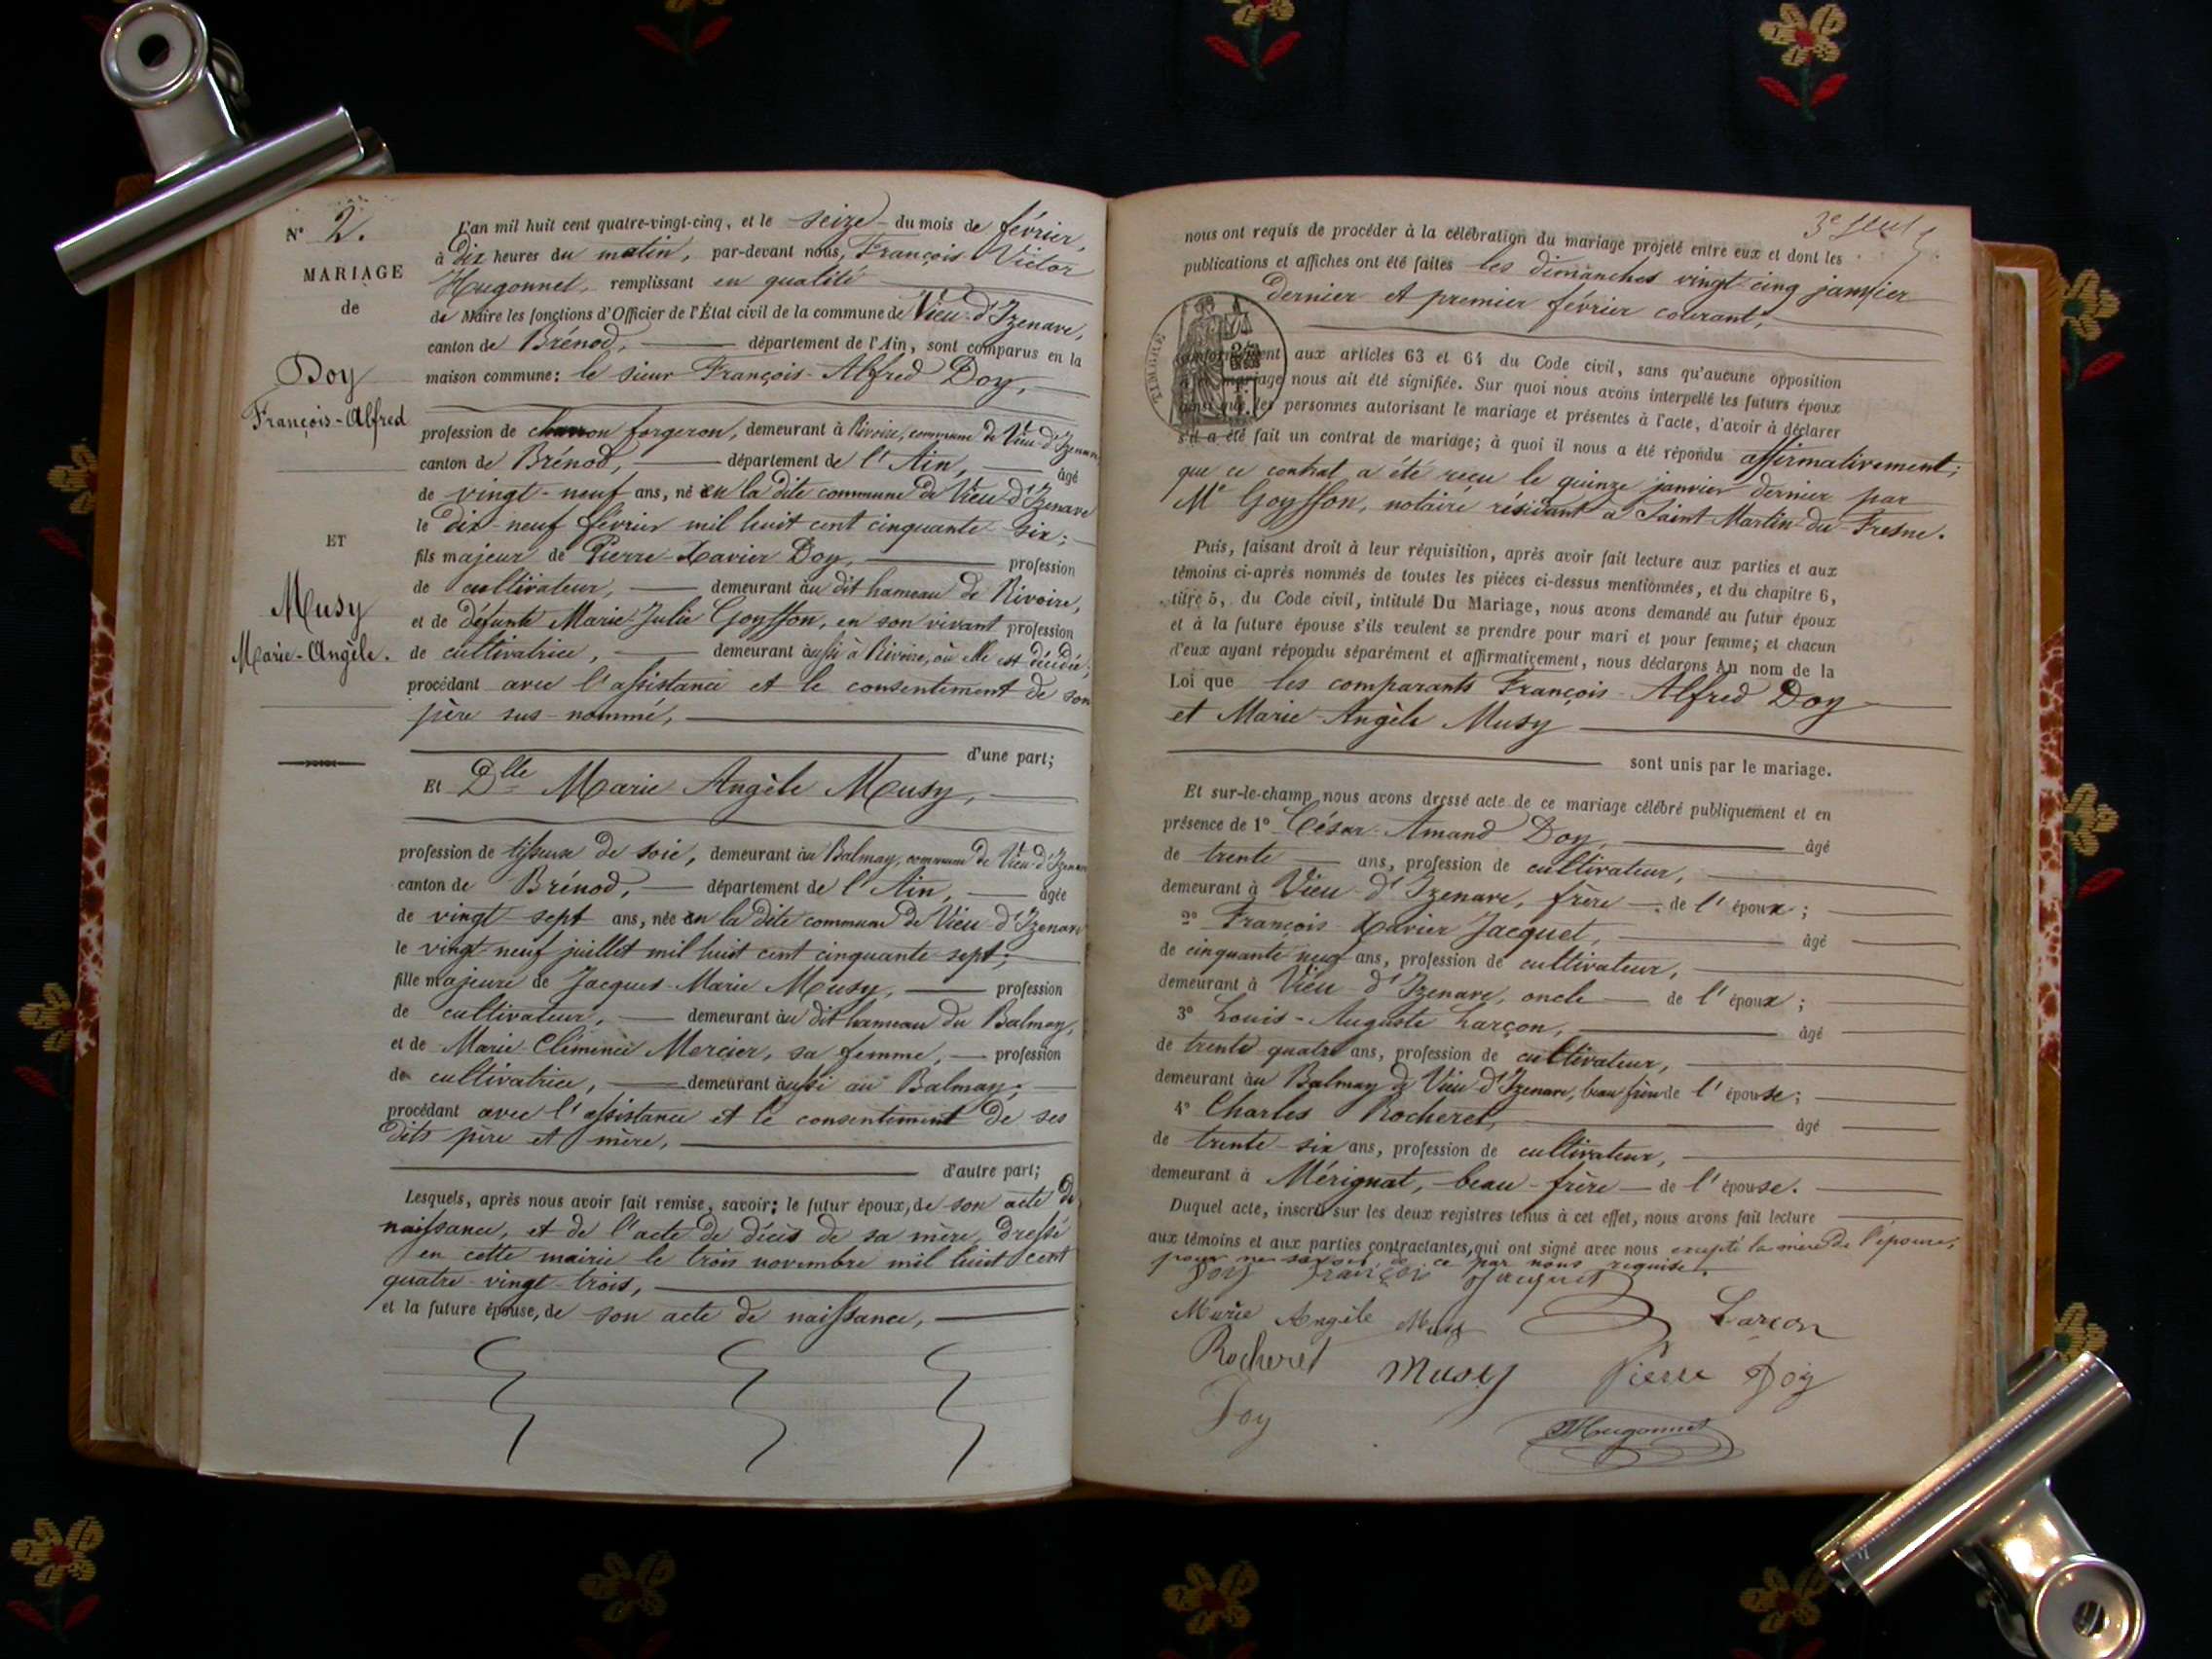 N° 2.
MARIAGE
de
Doy
François-Alfred
ET
Musy
Marie-Angèle.
L'an mil huit cent quatre-vingt-cinq, et le seize du mois de février,
à dix heures du matin, par-devant nous, François Victor
Hugonnet, remplissant en qualité
de Maire les fonctions d'Officier de l'État civil de la commune de Vieu-d'Izenave,
canton de Brénod, département de l'Ain, sont comparus en la
maison commune: le sieur François-Alfred Doy,
profession de charron forgeron, demeurant à Rivoire, commune de Vieu-d'Izenave
canton de Brénod, département de l'Ain, âgé
de vingt-neuf ans, né en la dite commune de Vieu-d'Izenave
le dix-neuf février mil huit cent cinquante-six;
fils majeur de Pierre-Xavier Doy, profession
de cultivateur, demeurant au dit hameau de Rivoire,
et de défunte Marie-Julie Goyffon, en son vivant profession
de cultivatrice, demeurant aussi à Rivoire, où elle est décédée;
procédant avec l'assistance et le consentement de son
père sus-nommé,
d'une part;
Et Dlle Marie Angèle Musy,
profession de tisseuse de soie, demeurant au Balmay, commune de Vieu-d'Izenave
canton de Brénod, département de l'Ain, âgée
de vingt-sept ans, née en la dite commune de Vieu-d'Izenave
le vingt neuf juillet mil huit cent cinquante-sept;
fille majeure de Jacques-Marie Musy, profession
de cultivateur, demeurant au dit hameau du Balmay,
et de Marie-Clémence Mercier, sa femme, profession
de cultivatrice, demeurant aussi au Balmay;
procédant avec l'assistance et le consentement de ses
dits père et mère,
d'autre part;
Lesquels, après nous avoir fait remise, savoir: le futur époux, de son acte de
naissance, et de l'acte de décès de sa mère, dressé
en cette mairie le trois novembre mil huit cent
quatre-vingt-trois,
et la future épouse, de son acte de naissance,
nous ont requis de procéder à la célébration du mariage projeté entre eux et dont les
publications et affiches ont été faites les dimanches vingt cinq janvier
dernier et premier février courant,
TIMBRE
conformément aux articles 63 et 64 du Code civil, sans qu'aucune opposition
à ce mariage nous ait été signifiée. Sur quoi nous avons interpellé les futurs époux
ainsi que les personnes autorisant le mariage et présentes à l'acte, d'avoir à déclarer
s'il a été fait un contrat de mariage; à quoi il nous a été répondu affirmativement;
que ce contrat a été reçu le quinze janvier dernier par
Me Goyffon, notaire résidant à Saint Martin-du-Fresne.
Puis, faisant droit à leur réquisition, après avoir fait lecture aux parties et aux
témoins ci-après nommés de toutes les pièces ci-dessus mentionnées, et du chapitre 6,
titre 5, du Code civil, intitulé Du Mariage, nous avons demandé au futur époux
et à la future épouse s'ils veulent se prendre pour mari et pour femme; et chacun
d'eux ayant répondu séparément et affirmativement, nous déclarons Au nom de la
Loi que les comparants François-Alfred Doy
et Marie-Angèle Musy
sont unis par le mariage.
Et sur-le-champ nous avons dressé acte de ce mariage célébré publiquement et en
présence de 1° César-Amand Doy, âgé
de trente ans, profession de cultivateur,
demeurant à Vieu-d'Izenave, frère de l'époux;
2° François Xavier Jacquet, âgé
de cinquante neuf ans, profession de cultivateur,
demeurant à Vieu-d'Izenave, oncle de l'époux;
3° Louis-Auguste Larçon, âgé
de trente quatre ans, profession de cultivateur,
demeurant au Balmay de Vieu-d'Izenave, beau frère de l'épouse;
4° Charles Rocheret, âgé
de trente-six ans, profession de cultivateur,
demeurant à Mérignat, beau-frère de l'épouse.
Duquel acte, inscrit sur les deux registres tenus à cet effet, nous avons fait lecture
aux témoins et aux parties contractantes, qui ont signé avec nous excepté la mère de l'épouse,
pour ne savoir, de ce par nous requise.
Doy François Jacquet
Marie Angèle Musy Larçon
Rocheret Musy Pierre Doy
Doy Hugonnet